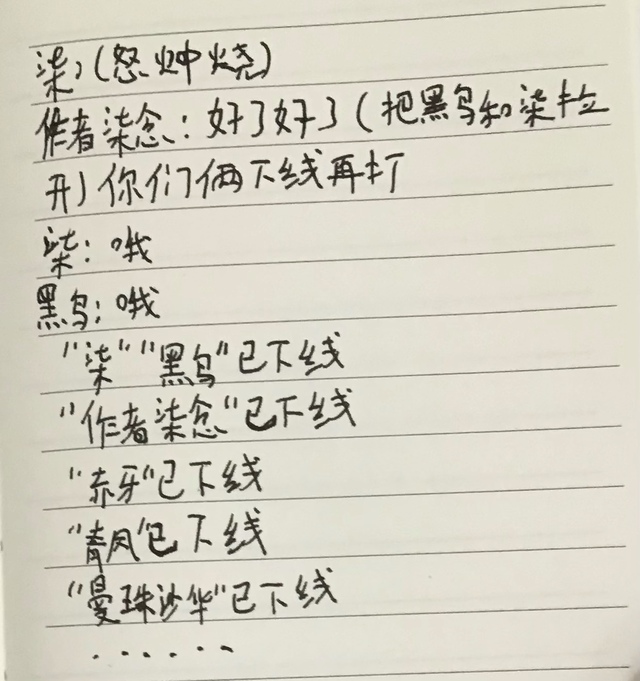 柒:(怒火中烧)
作者柒念:好了好了(把黑鸟和柒拉
开)你们俩下线再打
柒:哦
黑鸟:哦
"柒""黑鸟"已下线
"作者柒念"已下线
"赤牙"已下线
"青凤"已下线
"曼珠沙华"已下线
......